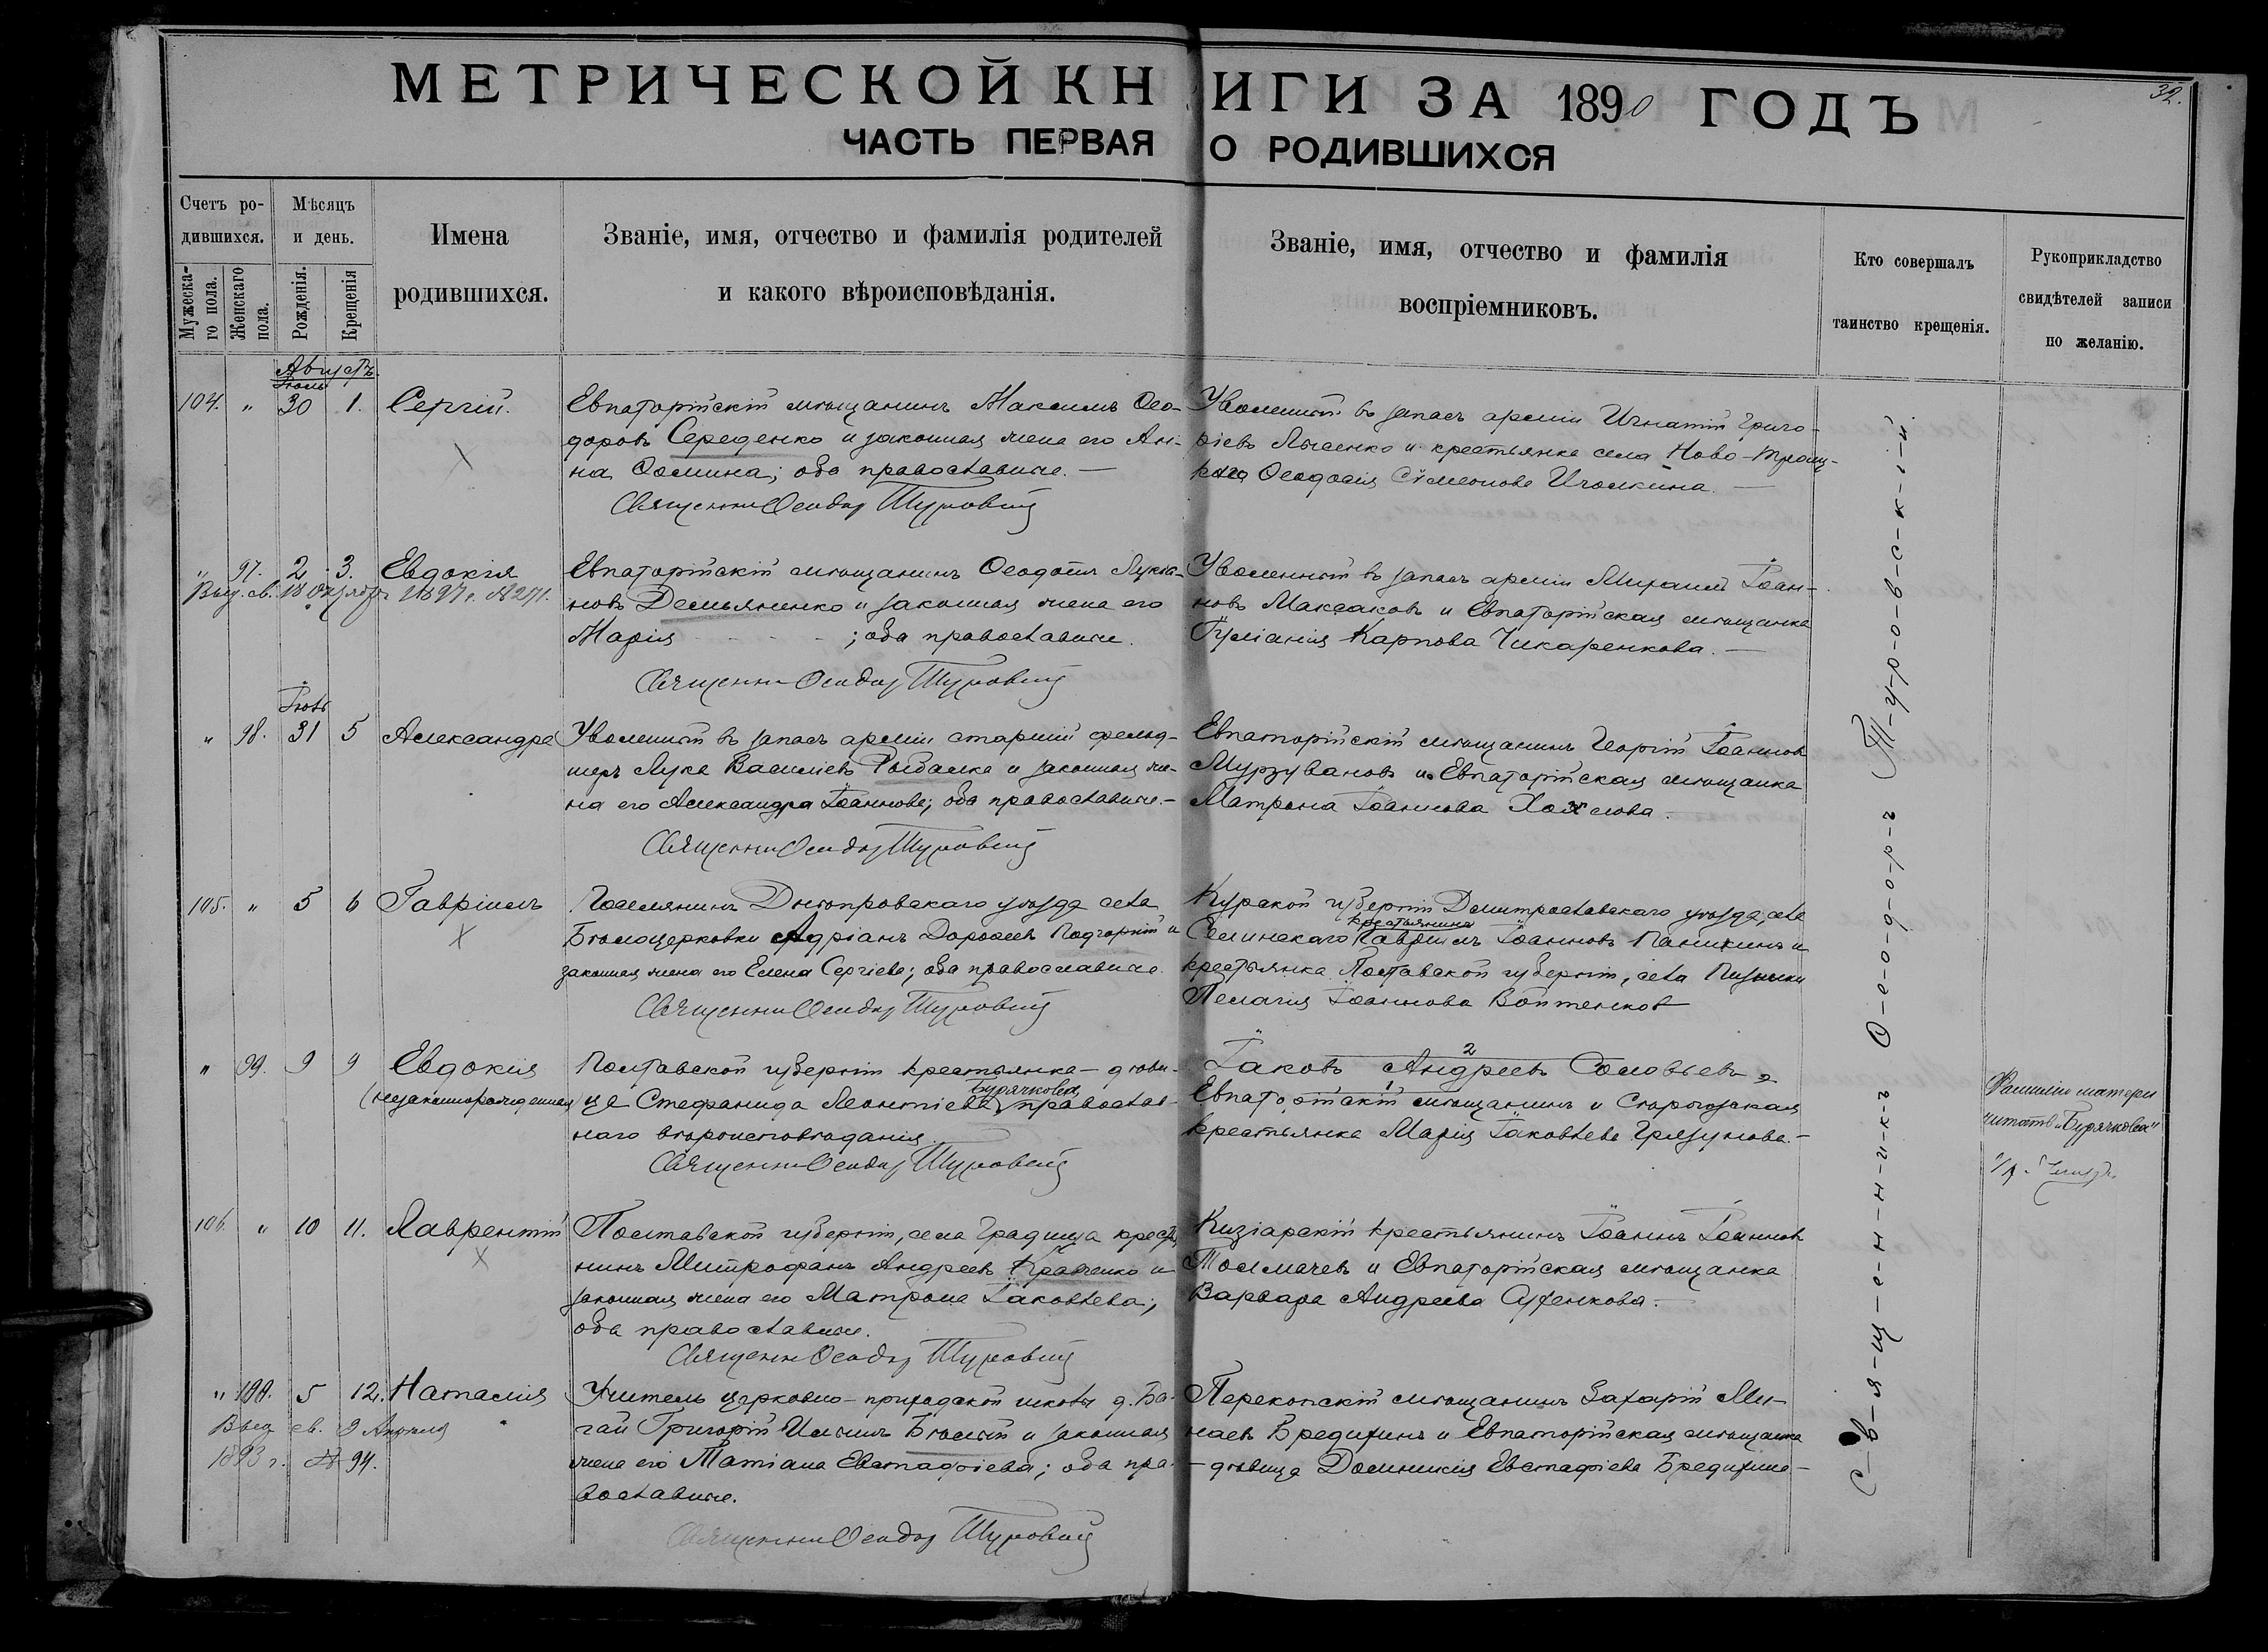 32.
МЕТРИЧЕСКОЙ КНИГИ ЗА 1890 ГОДЪ
ЧАСТЬ ПЕРВАЯ О РОДИВШИХСЯ
Счетъ родившихся.
Мужескаго пола.
Женскаго пола.
Мѣсяцъ и день.
Рожденія.
Крещенія
Имена родившихся.
Званіе, имя, отчество и фамилія родителей
и какого вѣроисповѣданія.
Званіе, имя, отчество и фамилія
воспріемниковъ.
Кто совершалъ
таинство крещенія.
Рукоприкладство
свидѣтелей записи
по желанію.
Августъ.
Іюль
104. " 30 1. Сергій.
Евпаторійскій мѣщанинъ Максимъ Ѳео-
доровъ Середенко и законная жена его Ан-
на Ѳомина; оба православные. —
Священникъ Ѳеодоръ Туровскій
Уволенный въ запасъ арміи Игнатій Григо-
ріевъ Лысенко и крестьянка села Ново-Троиц-
каго Ѳеодосія Сѵмеонова —
" 97. 2 3. Евдокія
Выд. св. 18 Октября 1897 г. № 271.
Евпаторійскій мѣщанинъ Ѳеодосій Лукья-
новъ Демьяненко и законная жена его
Марія ; оба православные.
Священникъ Ѳеодоръ Туровскій
Уволенный въ запасъ арміи Іоан-
новъ Максаковъ и Евпаторійская мѣщанка
Іуліанія Карпова Чикаренкова. —
Іюль
" 98. 31 5 Александра
Уволенный въ запасъ арміи старшій фельд-
шеръ Лука Василіевъ Рыбалка и законная же-
на его Александра Іоаннова; оба православные. —
Священникъ Ѳеодоръ Туровскій
Евпаторійскій мѣщанинъ Георгій Іоанновъ
Мурзувановъ и Евпаторійская мѣщанка
Матрона Іоаннова
105. " 5 6 Гавріилъ
Поселянинъ Днѣпровскаго уѣзда села
Бѣлоцерковки Адріанъ Дороѳеевъ Подгорній и
законная жена его Елена Сергіева; оба православные.
Священникъ Ѳеодоръ Туровскій
Курской губерніи Дмитріевскаго уѣзда, села
крестьянинъ
Гавріилъ Іоанновъ Паникинъ и
крестьянка Полтавской губерніи, села
Пелагія Іоаннова
" 99. 9 9 Евдокія
(незаконнорожденная
Полтавской губерніи крестьянка — дѣви-
Бурячкова,
ца Стефанида Леонтіева православ-
наго вѣроисповѣданія.
Священникъ Ѳеодоръ Туровскій
2
Іаковъ Андреевъ Соловьевъ
1
Евпаторійскій мѣщанинъ и
крестьянка Марія Іаковлева Грязунова. —
Фамилію матери
читать „Бурячкова"
106. " 10 11. Лаврентій
Полтавской губерніи, села Градижа крестья-
нинъ Митрофанъ Андреевъ Кравченко и
законная жена его Матрона Іаковлева;
оба православные.
Священникъ Ѳеодоръ Туровскій
Кизіарскій крестьянинъ Іоаннъ Іоанновъ
Толмачевъ и Евпаторійская мѣщанка
Варвара Андреева
" 100. 5 12. Наталія
Выд. св. 9 Апрѣля
1893 г. № 94.
Учитель церковно-приходской школы д. Ба-
гай Григорій Ильинъ Бѣлый и законная
жена его Татіана Евстафіева; оба пра-
вославные.
Священникъ Ѳеодоръ Туровскій
Перекопскій мѣщанинъ Захарій Ми-
наевъ Бредихинъ и Евпаторійская мѣщанка
— дѣвица Домникія Евстафіева Бредихина —
С-в-я-щ-е-н-н-и-к-ъ Ѳ-е-о-д-о-р-ъ Т-у-р-о-в-с-к-і-й.